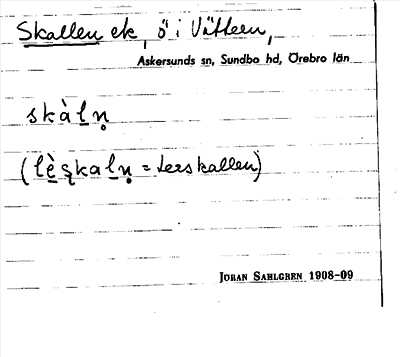 Skallen ek, ö i Vättern,
Askersunds sn, Sundbo hd, Örebro län
skàlṇ
(lèskalṇ = Lerskallen)
JÖRAN SAHLGREN 1908-09